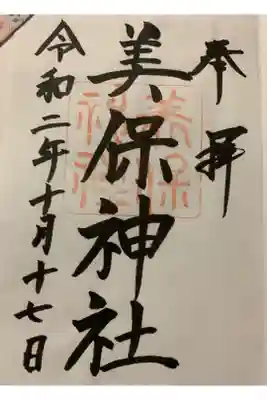 奉拝
美保神社
美保
神社
令和二年十月十七日